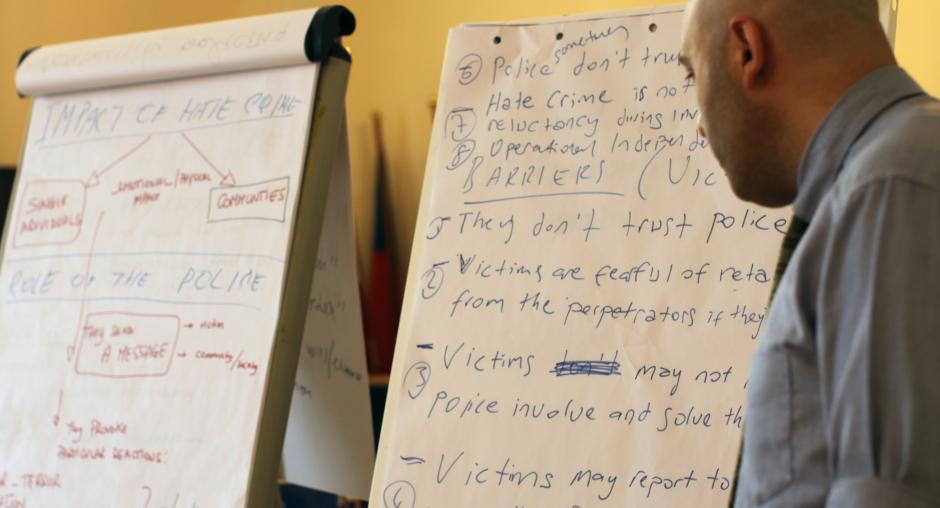 IMPACT OF HATE CRIME
SINGLE
INDIVIDUALS
EMOTIONAL/PHYSICAL
IMPACT
COMMUNITIES
ROLE OF THE POLICE
THEY SEND
A MESSAGE
→ victim
→ community/
They PROVOKE
PARTICULAR REACTIONS:
- TERROR
6 Police sometimes don't
- Hate Crime is not
7 reluctancy during
8 Operational
BARRIERS (
They don't trust police
2 Victims are fearful of
from the perpetrators if they
- Victims may not
3
Police involve and solve
- Victims may report to
4